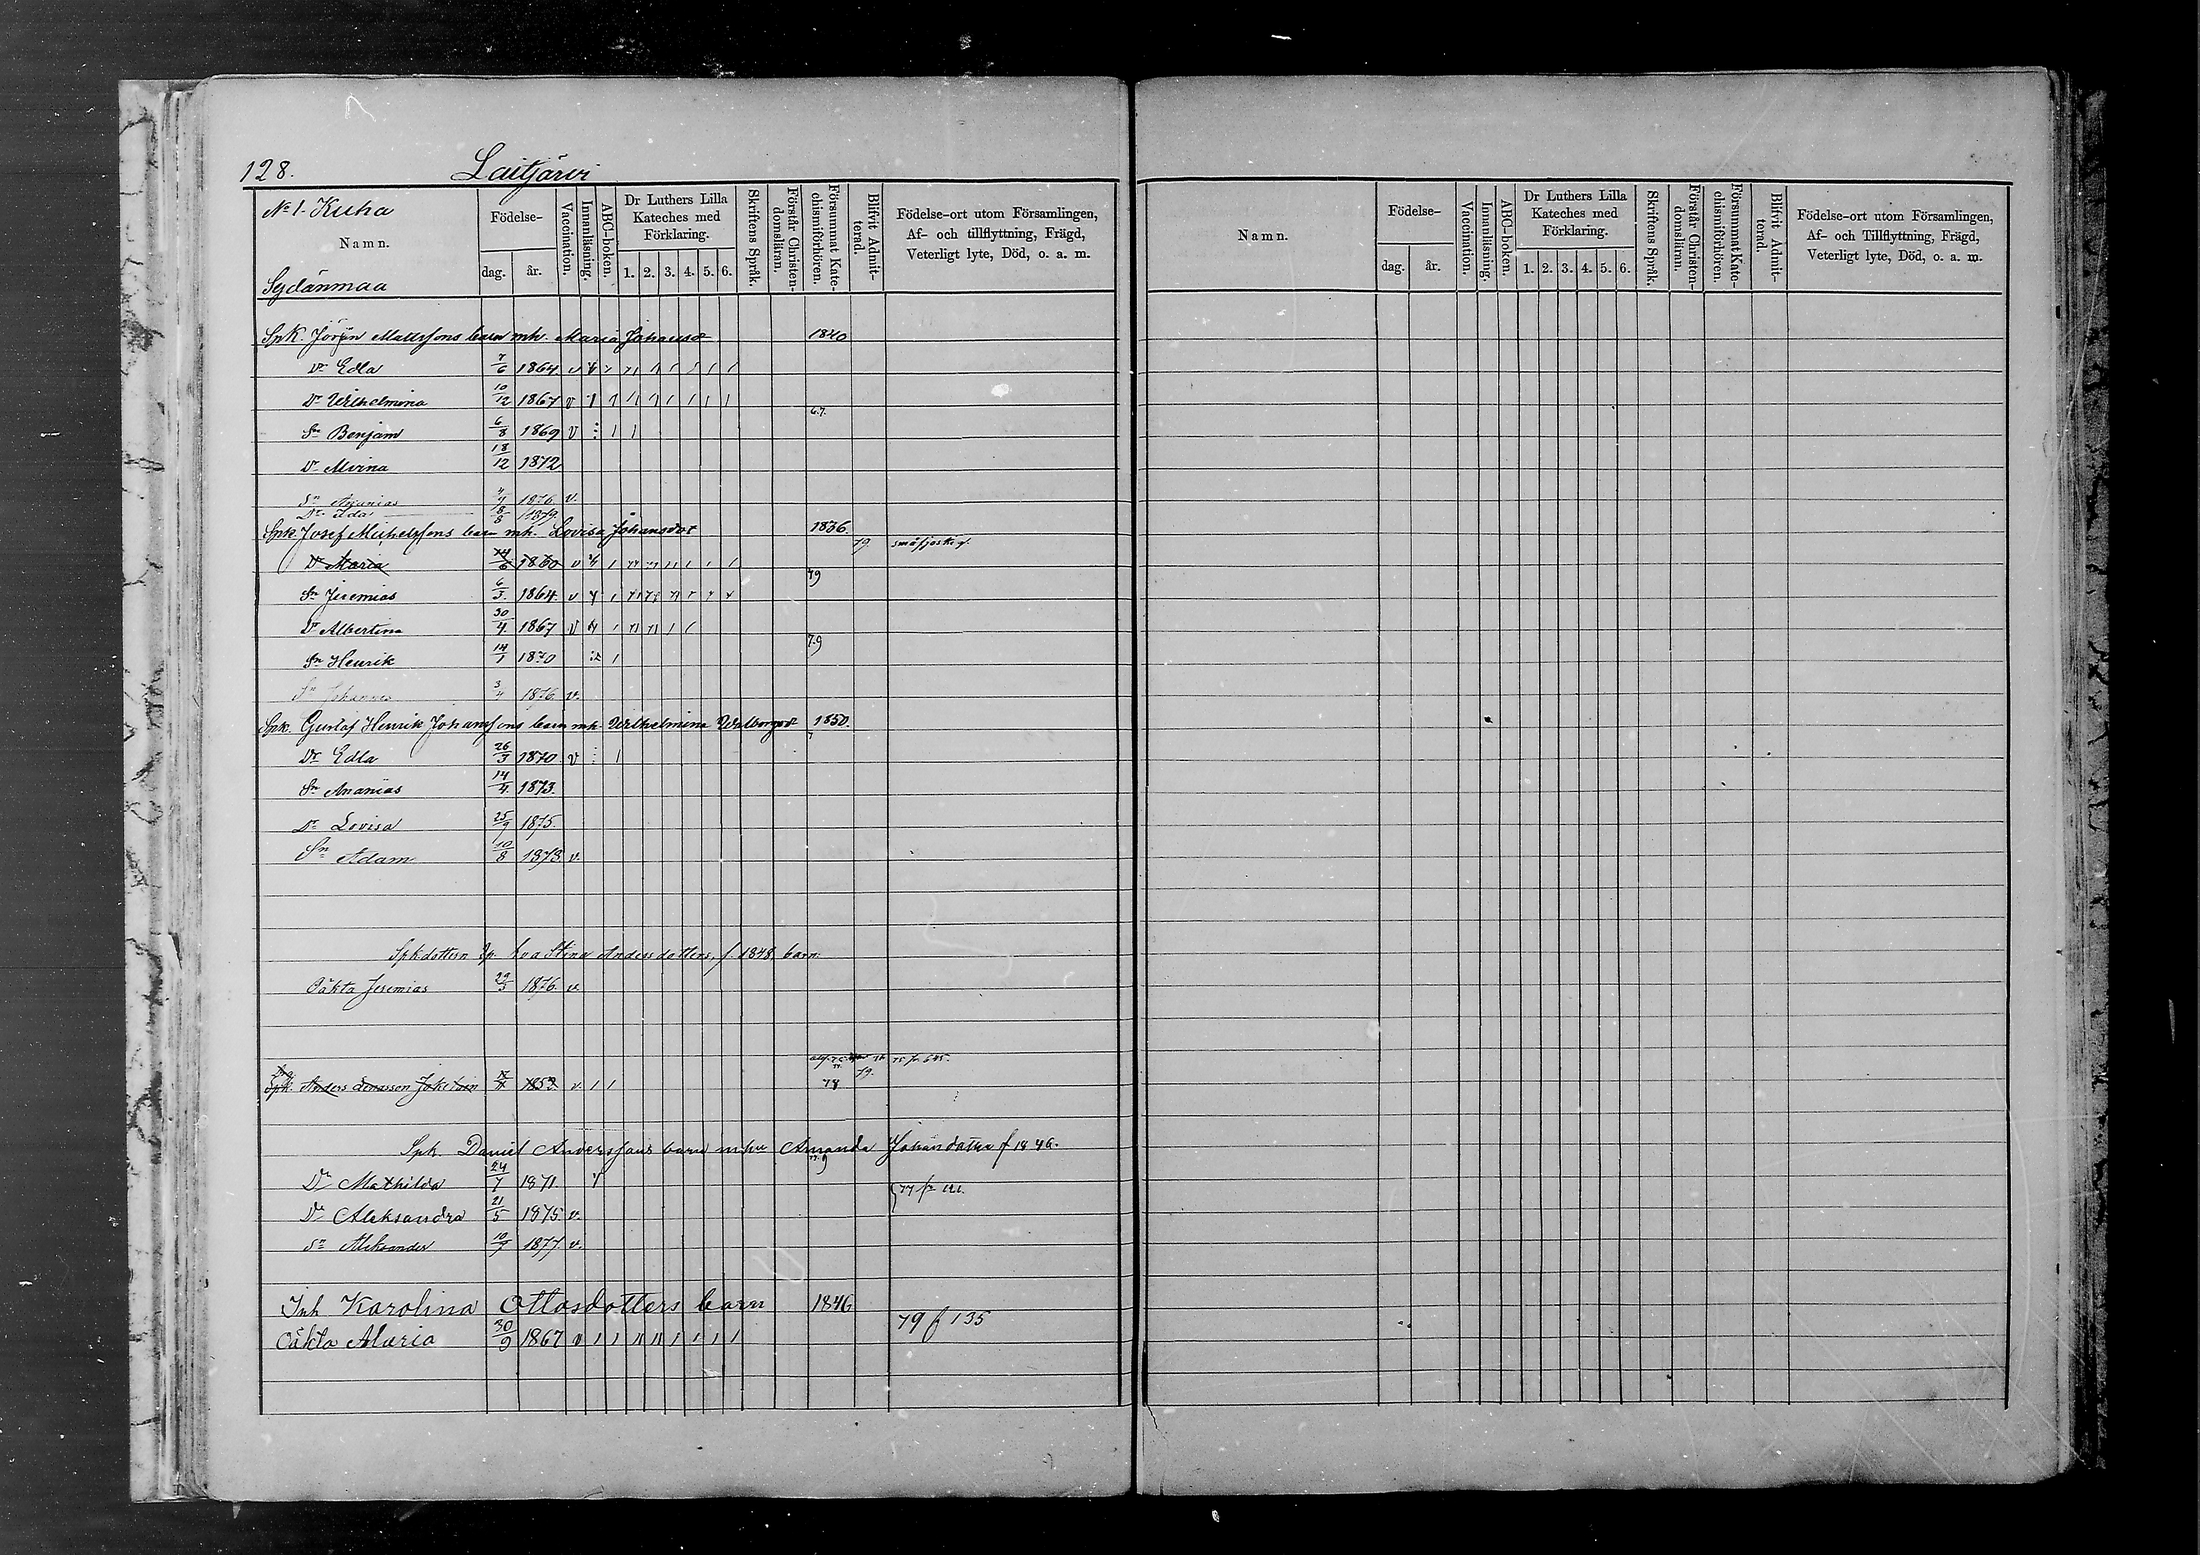 128. Laitjärvi
No 1. Kuha
Namn.
Sydänmaa
Födelse-
dag. år.
Vaccination.
Innanläsning.
ABC-boken.
Dr Luthers Lilla Kateches med Förklaring.
1. 2. 3. 4. 5. 6.
Skriftens Språk.
Förstår Christendomsläran.
Försummat Katechismiförhören.
Blifvit Admitterad.
Födelse-ort utom Församlingen, Af- och tillflyttning, Frägd, Veterligt lyte, Död, o. a. m.
Spk. Jöran Mattssons barn mh. Maria Johansd 1840
Dr Edla 7/6 1864 v
Dr Wilhelmina 10/12 1867 v
6.7.
Sn Benjam 6/8 1869 v
Dr Alvina 18/12 1872
Sn Ananias 1876 v.
Dr Ida 18/8 1879
Spk Josef Michelssons barn mh. Lovisa Johansdot 1836.
79.
Dr Maria 1860 v
79
Sn Jeremias 6/3. 1864. v
Dr Albertina 30/4. 1867 v
7.9
Sn Henrik 14/1 1870
Sn Johannes 1876. v.
Spk. Gustaf Henrik Johanssons barn mh. Wilhelmina Walborgsd 1850.
7
Dr Edla 26/3 1870 v
Sn Ananias 14/4. 1873.
Dr Lovisa 25/9 1875.
Sn Adam 10/8 1878 v.
Spkdottern Eva Stina Andersdotters, f. 1848 barn
Oäkta Jeremias 29/3 1876. v.
75 fr 645.
79.
Spk. Anders 1853. v. 78
Spk Daniel Anderssons barn mhu Amanda Johandotter f 1846.
77.9
Dr Mathilda 24/7 1871
77 fr
Dr Aleksandra 21/5 1875 v.
Sn Aleksander 10/9 1877 v.
Inh Karolina Ottosdotters barn 1846
79 f 135
Oäkta Maria 30/9 1867 v
Namn.
Födelse-
dag. år.
Vaccination.
Innanläsning.
ABC-boken.
Dr Luthers Lilla Kateches med Förklaring.
1. 2. 3. 4. 5. 6.
Skriftens Språk.
Förstår Christendomsläran.
Försummat Katechismiförhören.
Blifvit Admitterad.
Födelse-ort utom Församlingen, Af- och Tillflyttning, Frägd, Veterligt lyte, Död, o. a. m.